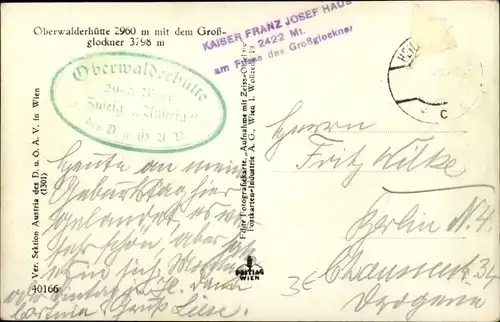 Oberwalderhütte 2960 m mit dem Groß-
glockner 3798 m
KAISER FRANZ JOSEF HAUS
2422 Mt.
am Fuße des Großglockner
Oberwalderhütte
Zweig "Austria"
des D. u. Ö. A. V.
Ver. Sektion Austria des D. u. Ö. A. V. in Wien
(1301)
40166
Echte Fotografiekarte. Aufnahme mit Zeiss-Objektiv
Postkarten-Industrie A. G., Wien I. Wollzeile 19.
POSTIAG
WIEN
C
Heute an mein
Geburtstag hier
gelandet, es war
sehr schön, aber
Gruß Liese.
Herrn
Fritz Wilke
Berlin N. 4.
Chausseestr. 32
Drogerie